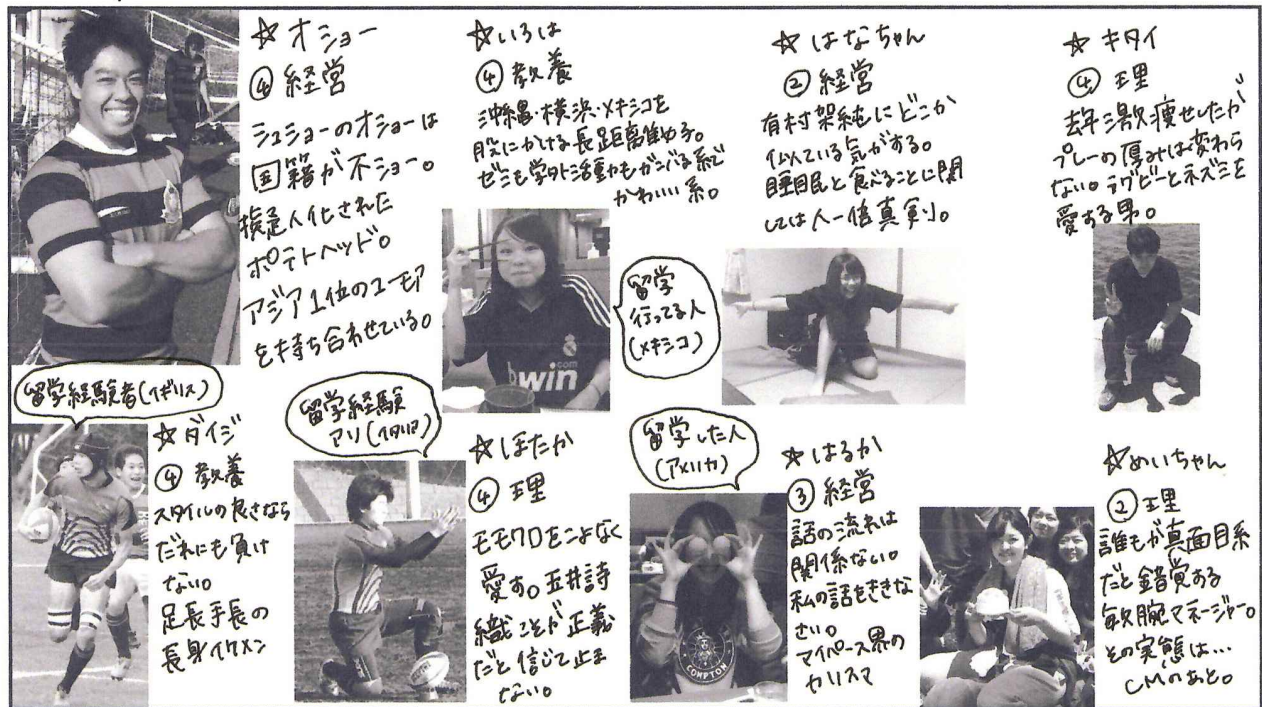 ☆オショー
④経営
シュショーのオショーは
国籍が不ショー。
擬人化された
ポテトヘッド。
アジア1位のユーモア
を持ち合わせている。
☆いろは
④教養
沖縄・横浜・メキシコを
股にかける長距離
ゼミも学外活動もガンバる系で
かわいい系。
留学
行ってる人
(メキシコ)
bwin
.com
☆はなちゃん
②経営
有村架純にどこか
似ている気がする。
睡眠と食べることに関
しては人一倍真剣。
☆キタイ
④理
去年激痩せしたが
プレーの厚みは変わら
ない。ラグビーとネズミを
愛する男。
留学経験者(イギリス)
☆ダイジ
④教養
スタイルの良さなら
だれにも負け
ない。
足長手長の
長身イケメン
留学経験
アリ(イタリア)
☆ほたか
④理
モモクロをこよなく
愛す。玉井詩
織こそが正義
だと信じて止ま
ない。
留学した人
(アメリカ)
COMPTON
☆はるか
③経営
話の流れは
関係ない。
私の話をききな
さい。
マイペース界の
カリスマ
☆めいちゃん
②理
誰もが真面目系
だと錯覚する
敏腕マネージャー。
その実態は…
CMのあと。